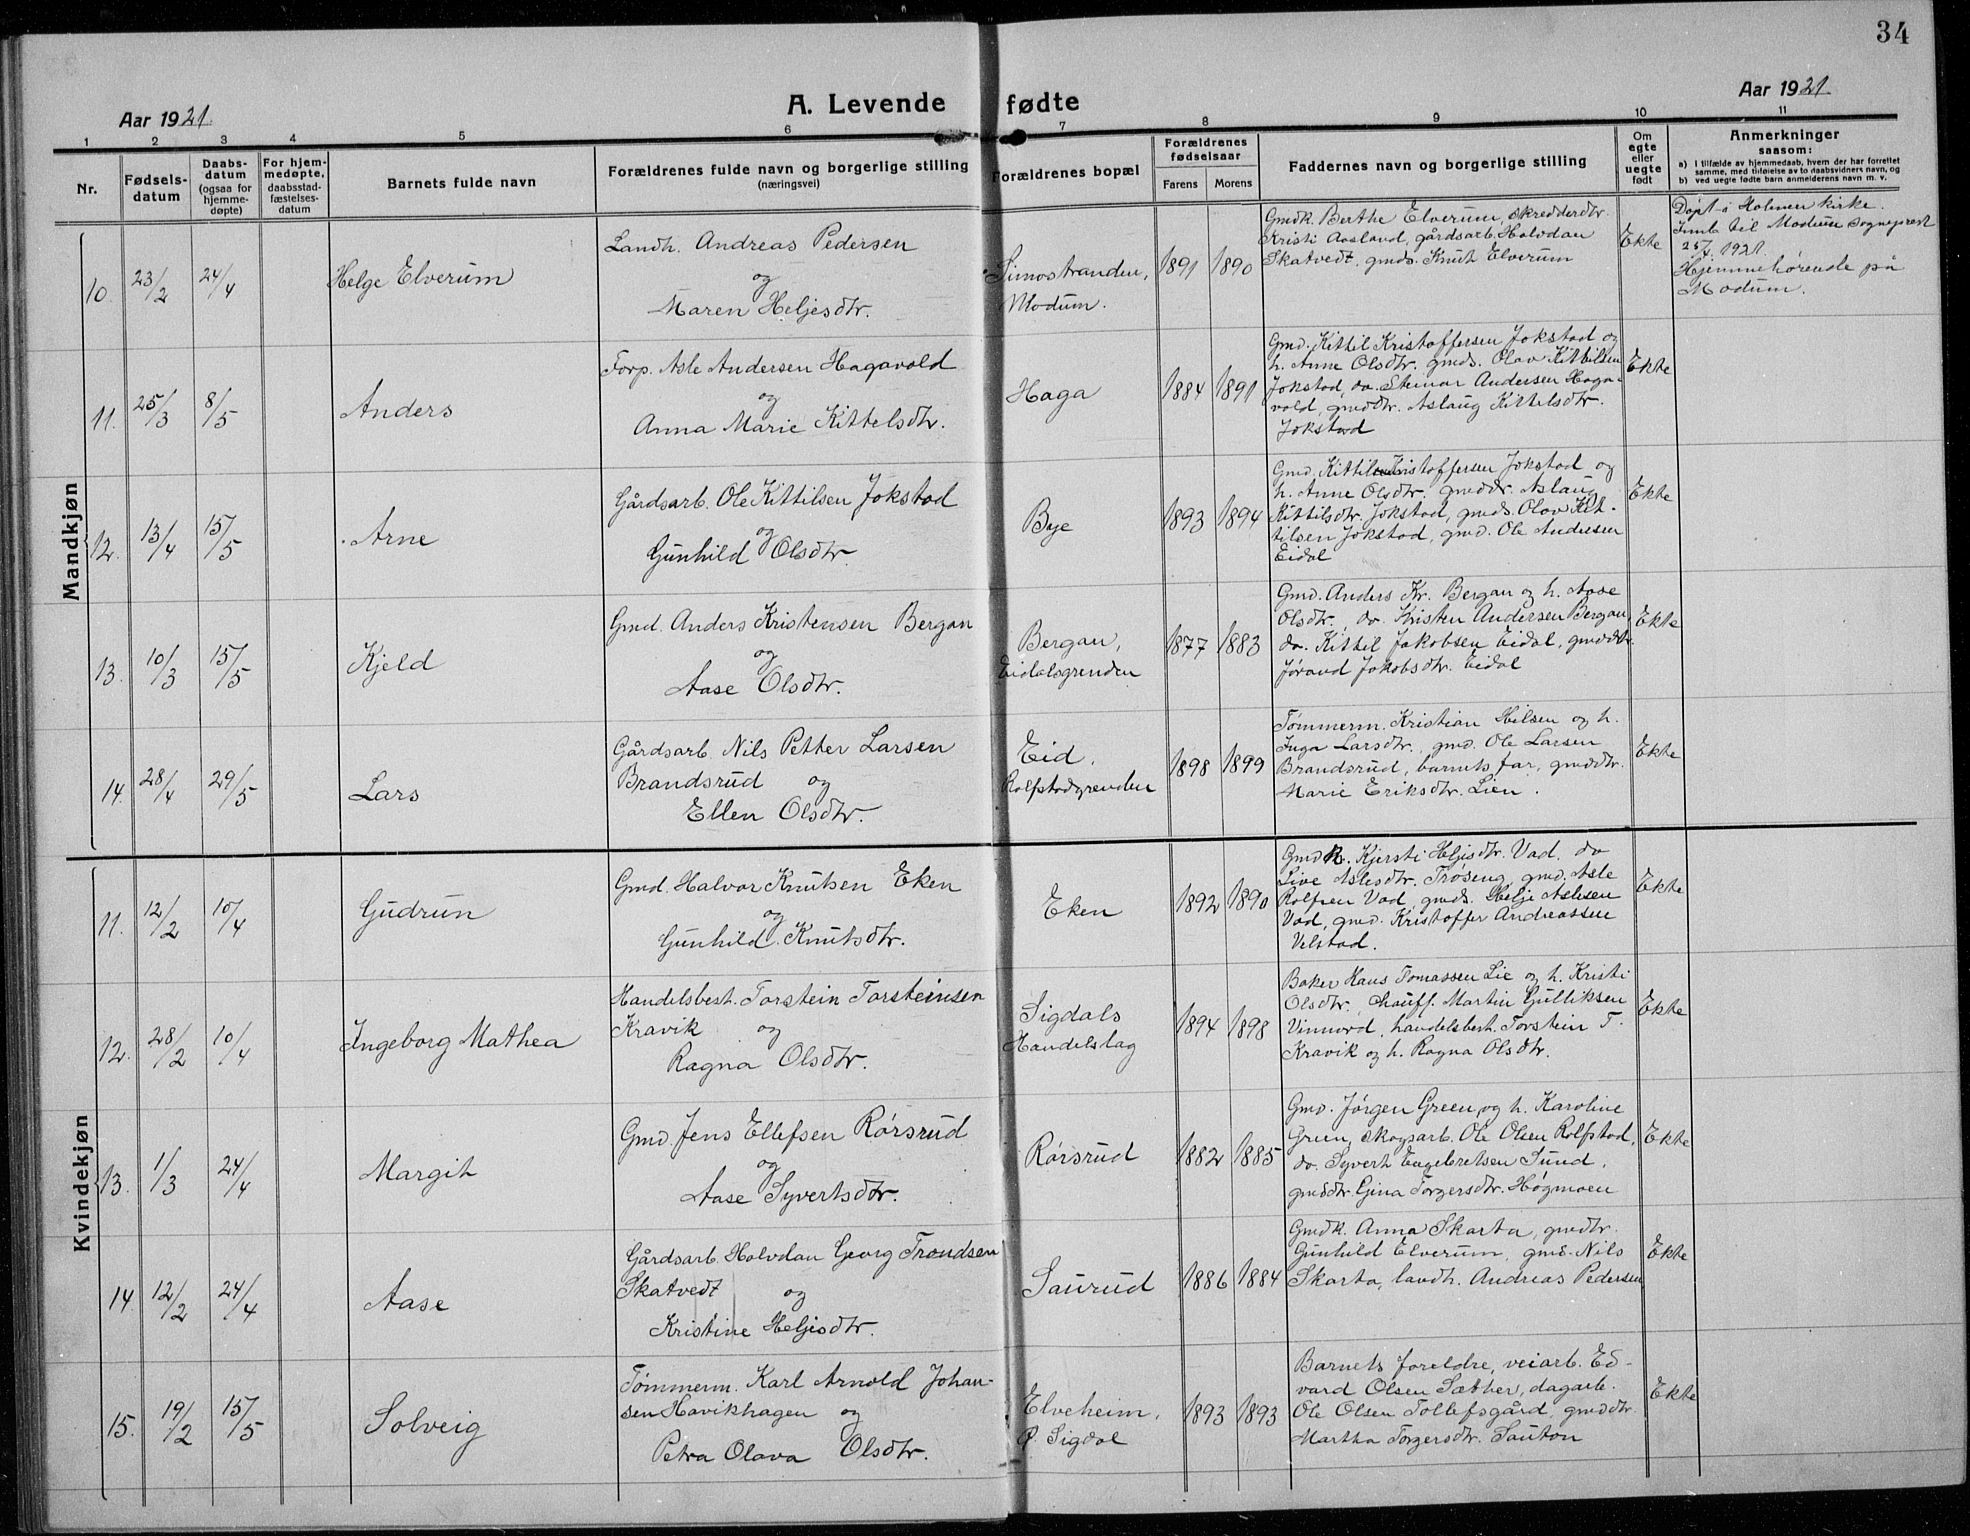 34
A. Levende fødte
Aar 1921.
Aar 1921.
1 2 3 4 5 6 7 8 9 10 11
Nr.
Fødsels-
datum
Daabs-
datum
(ogsaa for
hjemme-
døpte)
For hjem-
medøpte,
daabsstad-
fæstelses-
datum
Barnets fulde navn
Forældrenes fulde navn og borgerlige stilling
(næringsvei)
Forældrenes bopæl
Forældrenes
fødselsaar
Farens Morens
Faddernes navn og borgerlige stilling
Om
egte
eller
uegte
født
Anmerkninger
saasom:
a) I tilfælde av hjemmedaab, hvem der har forrettet
samme, med tilføielse av to daabsvidners navn, og
b) ved uegte fødte barn anmelderens navn m. v.
Mandkjøn
10. 23/2 24/4
Helge Elverum
Landh. Andreas Pedersen
og
Maren Heljesdtr.
Simostranden,
Modum.
1891 1890
Gmdk. Berthe Elverum, skredderdtr.
Kristi Aasland, gårdsarb. Halvdan
Skatvedt, gmds. Knut Elverum
Ekte
Døpt i Holmen kirke.
Innb. til Modum sogneprest
25/4 1921.
Hjemmehørende på
Modum.
11. 25/3 8/5
Anders
Forp. Asle Andersen Hagavold
og
Anna Marie Kittelsdtr.
Haga
1884 1891
Gmd. Kittil Kristoffersen Jokstad og
h. Anne Olsdtr. gmds. Olav Kittilsen
Jokstad, do. Steinar Andersen Haga-
vold, gmddtr. Aslaug Kittelsdtr.
Jokstad
Ekte
12. 13/4 15/5
Arne
Gårdsarb. Ole Kittilsen Jokstad
og
Gunhild Olsdtr.
Bye
1893 1894
Gmd. Kittil Kristoffersen Jokstad og
h. Anne Olsdtr. gmddr. Aslaug
Kittilsdtr. Jokstad, gmds. Olav Kit-
tilsen Jokstad, gmd. Ole Andresen
Eidal
Ekte
13. 10/3 15/5
Kjeld
Gmd. Anders Kristensen Bergan
og
Aase Olsdtr.
Bergan,
Eidalsgrenden
1877 1883
Gmd. Anders Kr. Bergan og h. Aase
Olsdtr., do. Kristen Andersen Bergan,
do. Kittil Jakobsen Eidal, gmddtr.
Jørand Jakobsdtr. Eidal
Ekte
14. 28/4 29/5
Lars
Gårdsarb. Nils Petter Larsen
Brandsrud og
Ellen Olsdtr.
Eid,
Rolfstadgrenden
1898 1899
Tømmerm. Kristian Nilsen og h.
Inga Larsdtr., gmd. Ole Larsen
Brandsrud, barnets far, gmddtr.
Marie Eriksdtr. Lien.
Ekte
Kvindekjøn
11. 12/2 10/4
Gudrun
Gmd. Halvor Knutsen Eken
og
Gunhild Knutsdtr.
Eken
1892 1890
Gmdk. Kjersti Heljesdtr. Vad, do
Live Aslesdtr. Trøseng, gmd. Asle
Rolfsen Vad, gmds. Helje Aslesen
Vad, gmd. Kristoffer Andreassen
Velstad.
Ekte
12. 28/2 10/4
Ingeborg Mathea
Handelsbest. Torstein Torsteinsen
Kravik og
Ragna Olsdtr.
Sigdals
Handelslag
1894 1898
Baker Hans Tomassen Lie og h. Kristi
Olsdtr., chauff. Martin Gulliksen
Vinnord, handelsbest. Torstein T.
Kravik og h. Ragna Olsdtr.
Ekte
13. 1/3 24/4
Margit
Gmd. Jens Ellefsen Rørsrud
og
Aase Syvertsdtr.
Rørsrud
1882 1885
Gmd. Jørgen Green og h. Karoline
Green, skogsarb. Ole Olsen Rolfstad,
do. Syvert Engebretsen Sund,
gmddtr. Gina Torgersdtr. Høgmoen
Ekte
14. 12/2 24/4
Aase
Gårdsarb. Halvdan Georg Trondsen
Skatvedt og
Kristine Heljesdtr.
Saurud
1886 1884
Gmdk. Anna Skarta, gmddtr.
Gunhild Elverum, gmds. Nils
Skarta, landh. Andreas Pedersen
Ekte
15. 19/2 15/5
Solveig
Tømmerm. Karl Arnold Johan-
sen Havikhagen og
Petra Olava Olsdtr.
Elveheim,
P. Sigdal
1893 1893
Barnets foreldre, veiarb. Ed-
vard Olsen Sæther, dagarb.
Ole Olsen Tollefsgård, gmddtr.
Martha Torgersdtr. Sauton
Ekte